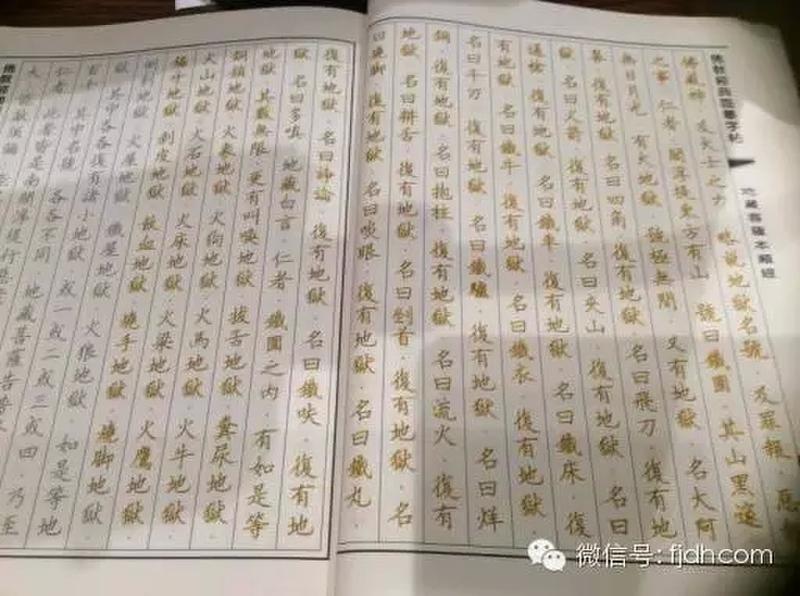 佛教經典臨摹字帖
地藏菩薩本願經
佛威神·及大士之力·略說地獄名號·及罪報·惡
之事·仁者·閻浮提東方有山·號曰鐵圍·其山黑邃
無日月光·有大地獄·號極無間·又有地獄·名大阿
鼻·復有地獄·名曰四角·復有地獄·名曰飛刀·復有地
獄·名曰火箭·復有地獄·名曰夾山·復有地獄·名曰
通槍·復有地獄·名曰鐵車·復有地獄·名曰鐵床·復
有地獄·名曰鐵牛·復有地獄·名曰鐵衣·復有地獄
名曰千刃·復有地獄·名曰鐵驢·復有地獄·名曰烊
銅·復有地獄·名曰抱柱·復有地獄·名曰流火·復有
地獄·名曰耕舌·復有地獄·名曰剉首·復有地獄·名
曰燒脚·復有地獄·名曰啖眼·復有地獄·名曰鐵丸·
復有地獄·名曰諍論·復有地獄·名曰鐵鈇·復有地
獄·名曰多嗔·地藏白言·仁者·鐵圍之內·有如是等
地獄·其數無限·更有叫喚地獄·拔舌地獄·糞尿地獄
銅鎖地獄·火象地獄·火狗地獄·火馬地獄·火牛地獄·
火山地獄·火石地獄·火床地獄·火梁地獄·火鷹地獄·
鋸牙地獄·剝皮地獄·飲血地獄·燒手地獄·燒脚地獄·
倒刺地獄·火屋地獄·鐵屋地獄·火狼地獄·如是等地
獄·其中各各復有諸小地獄·或一或二或三或四·乃至
百千·其中名號·各各不同·地藏菩薩告普
仁者·此者皆是南閻浮提行惡
大·能敵須彌·能
微信号: fjdhcom